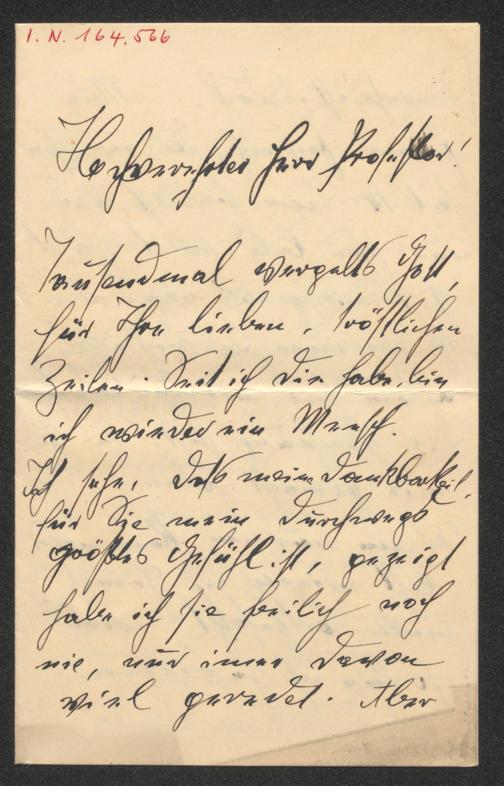 I. N. 164.566
Hochverehrter Herr Professor!
Tausendmal vergelts Gott,
für Ihre lieben, tröstlichen
Zeilen. Seit ich die habe, bin
ich wieder ein Mensch.
Ich sehe, daß meine Dankbarkeit
für Sie mein durchwegs
größtes Gefühl ist, gezeigt
habe ich sie freilich noch
nie, nur immer davon
viel geredet. Aber